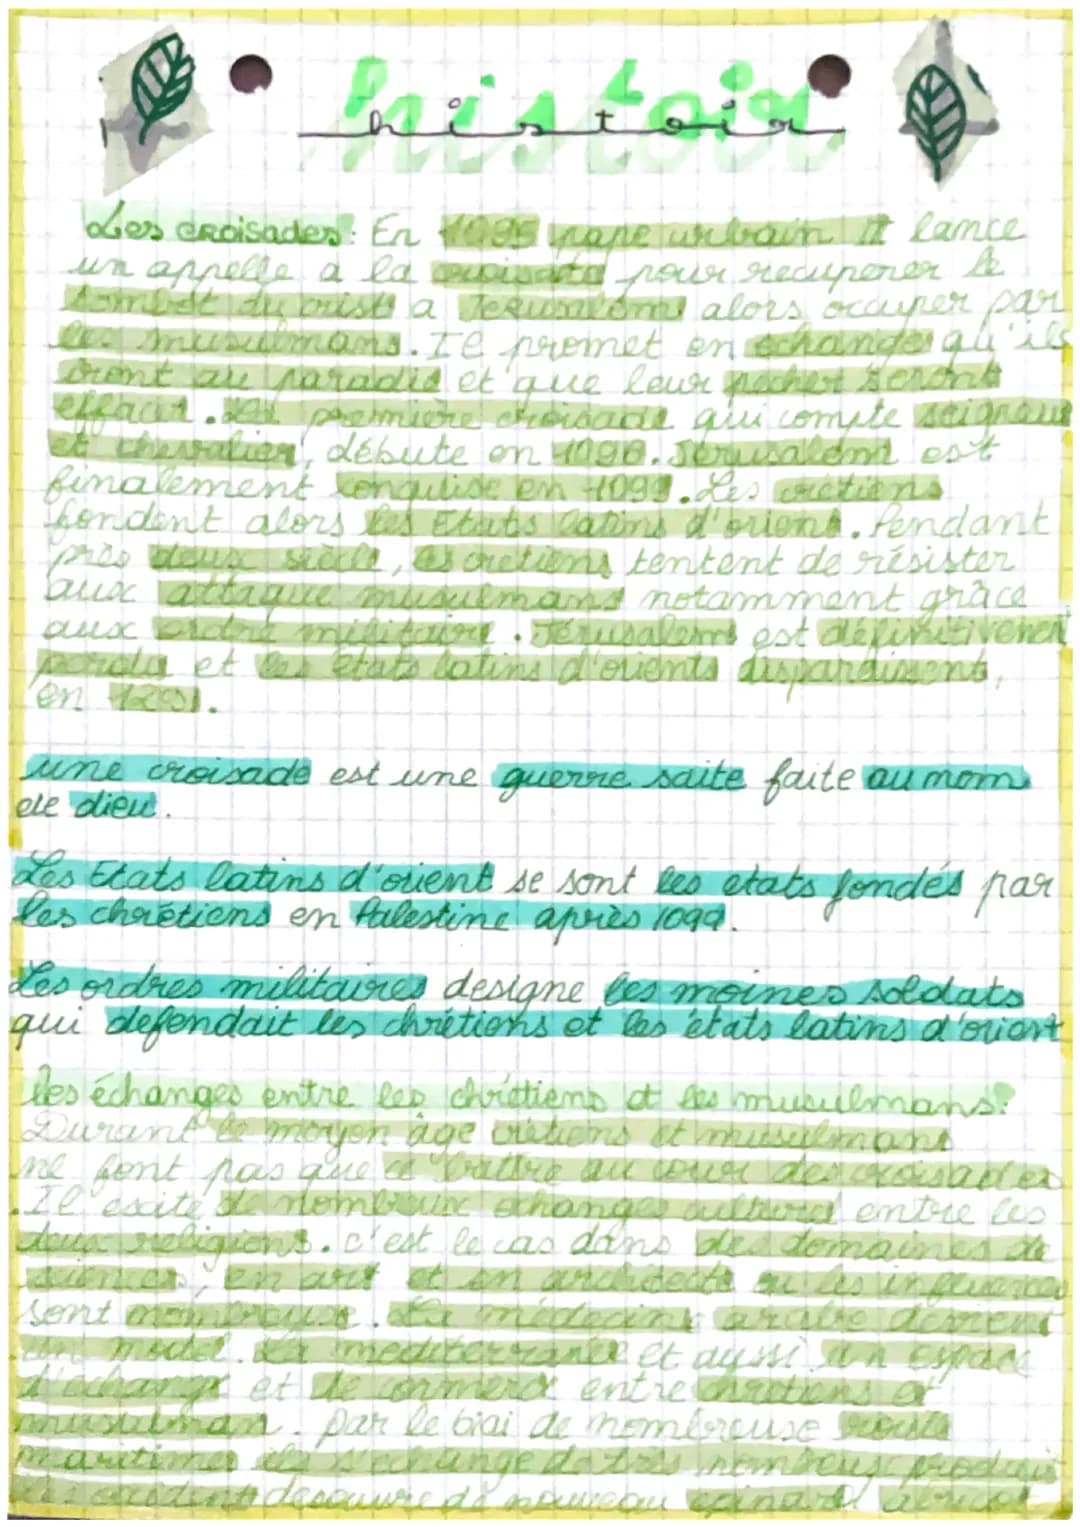 histoir
Les croisades: En 1095 pape urbain II lance
un appelle a la croisade pour recuperer le
tombot du crist a Jerusalem alors occuper par
les musulmans. Il promet en echange qu'ils
iront au paradis et que leur pecher seront
effacer. La première croisade qui compte seigneur
et chevalier, débute en 1096. Jerusalem est
finalement conquise en 1099. Les cretiens
fondent alors les Etats latins d'orient. Pendant
près deux siècle, les cretiens tentent de résister
aux attaque musulmans notamment grâce
aux ordre militaire. Jerusalem est définitivement
perdu et les états latins d'orients disparaissent,
en 1291.
une croisade est une guerre saite faite au mom
de dieu.
Les Etats latins d'orient se sont les etats fondés par
les chrétiens en Palestine après 1099.
Les ordres militaires designe les moines soldats
qui defendait les chrétiens et les états latins d'orient
les échanges entre les chrétiens et les musulmans:
Durant le moyen âge cretiens et musulmans
ne font pas que ce battre au cour des croisades
. Il escite de nombreux echanges culturel entre les
deux religions. c'est le cas dans des domaines de
sciences, en art et en architecte ou les influences
sont nombreuse. La médecine arabe devient
un model. La mediterranée et aussi un espace
d'echange et de commerce entre chretiens et
musulman. par le biai de nombreuse route
maritimes ils s'echange de très nombeux produit
les occident descuvre de nouveau epinard abricot